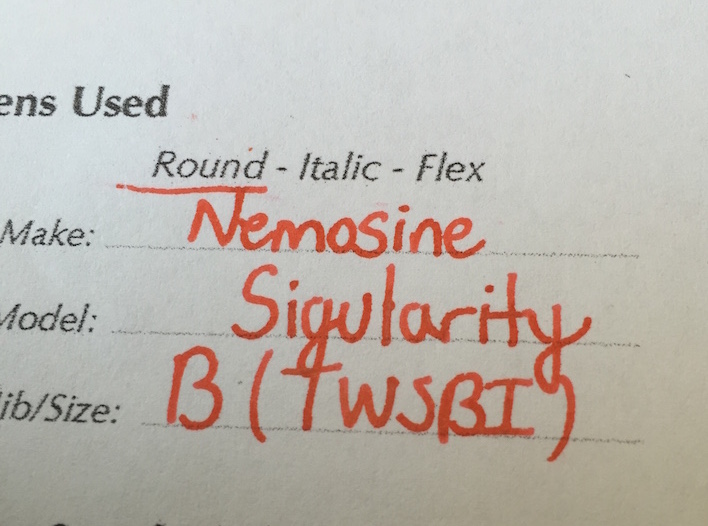 ens Used
Round - Italic - Flex
Make: Nemosine
Model: Sigularity
ib/Size: B (TWSBI)